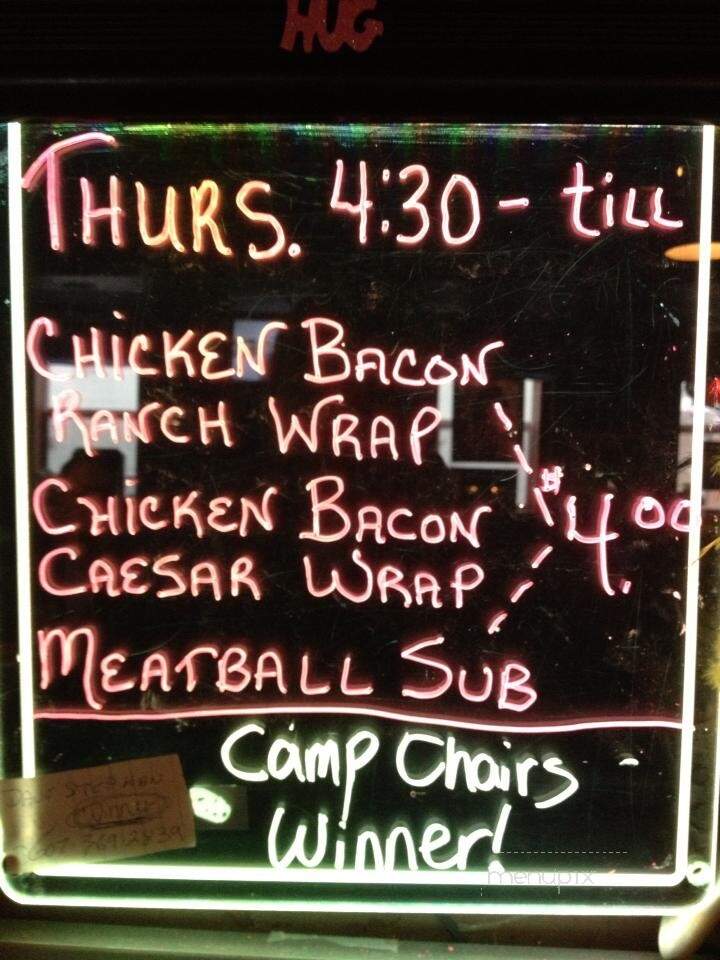 HUG
THURS. 4:30 - till
CHiCKEN BACON
RANCH WRAP
CHiCKEN BACON $4.00
CAESAR WRAP
MEATBALL SUB
Camp Chairs -
Winner!
menupix